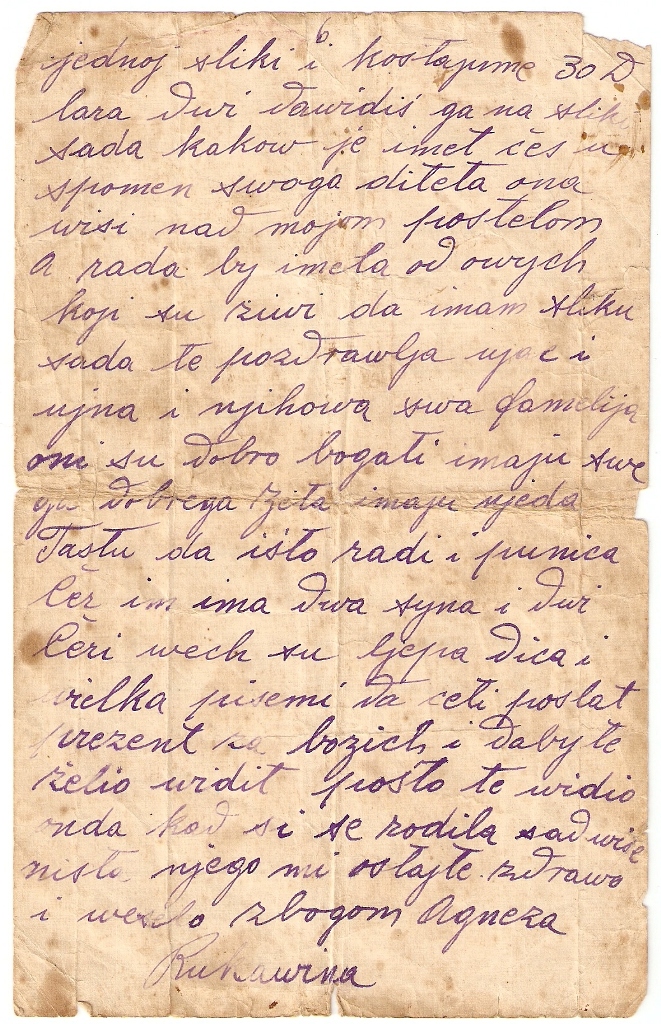 6
jednoj sliki i kostajume 30 D
lara dwi da widiś ga na sliki
sada kakow je imet ćeś u
spomen swoga diteta ona
wisi nad mojom postelom
A rada by imela od owych
koji su živi da imam sliku
sada te pozdrawlja ujac i
ujna i njihowa swa familija
oni su dobro bogati imaju swe
ga dobrega zeta imaju njeda
Tastu da isto radi i punica
Čer im ima dwa syna i dwi
Čeri wech su ljepa dica i
wielka pisemi da ćeti poslat
prezent za bozich i daby te
želio widit pošto te widio
onda kad si se rodila sad wiśe
nista njego mi ostajte zdrawo
i weselo zbogom Agneza
Rukawina